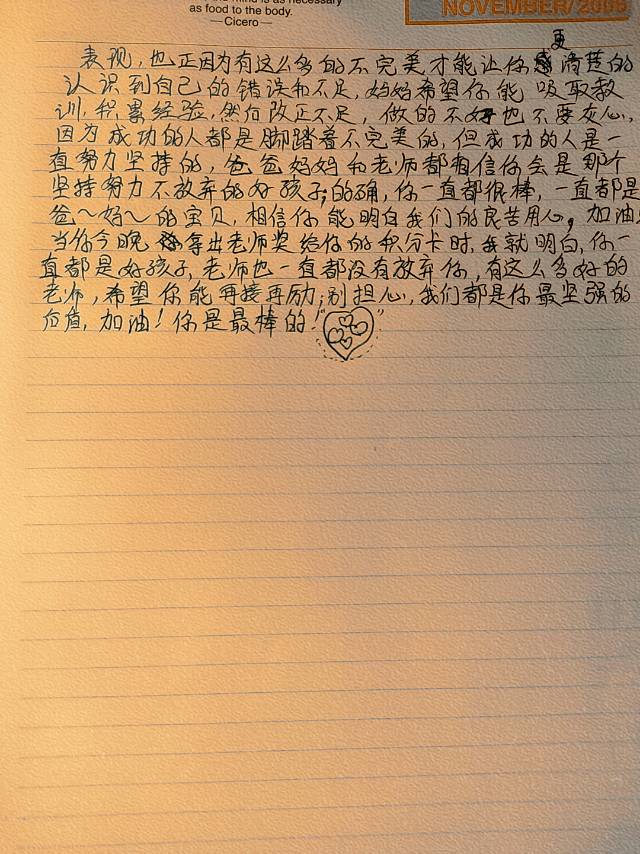 the mind is as necessary
as food to the body.
—Cicero—
NOVEMBER/2006
更
表现,也正因为有这么多的不完美才能让你清楚的
认识到自己的错误和不足,妈妈希望你能吸取教
训,积累经验,然后改正不足,做的不好也不要灰心,
因为成功的人都是脚踏着不完美的,但成功的人是一
直努力坚持的,爸爸妈妈和老师都相信你会是那个
坚持努力不放弃的好孩子;的确,你一直都很棒,一直都是
爸~妈~的宝贝,相信你能明白我们的良苦用心。加油!
当你今晚拿出老师奖给你的积分卡时,我就明白,你一
直都是好孩子,老师也一直都没有放弃你,有这么多好的
老师,希望你能再接再励;别担心,我们都是你最坚强的
后盾,加油!你是最棒的!